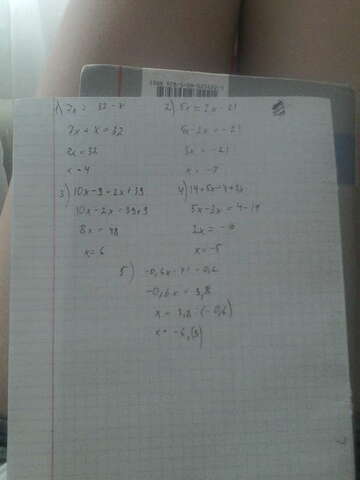 1) 7x = 32 - x
7x + x = 32
8x = 32
x = 4
2) 5x = 2x - 21
5x - 2x = -21
3x = -21
x = -7
3) 10x - 9 = 2x + 39
10x - 2x = 39 + 9
8x = 48
x = 6
4) 14 + 5x = 4 + 3x
5x - 3x = 4 - 14
2x = -10
x = -5
5)
-0,6x = 3,8
x = 3,8 : (-0,6)
x = -6,(3)